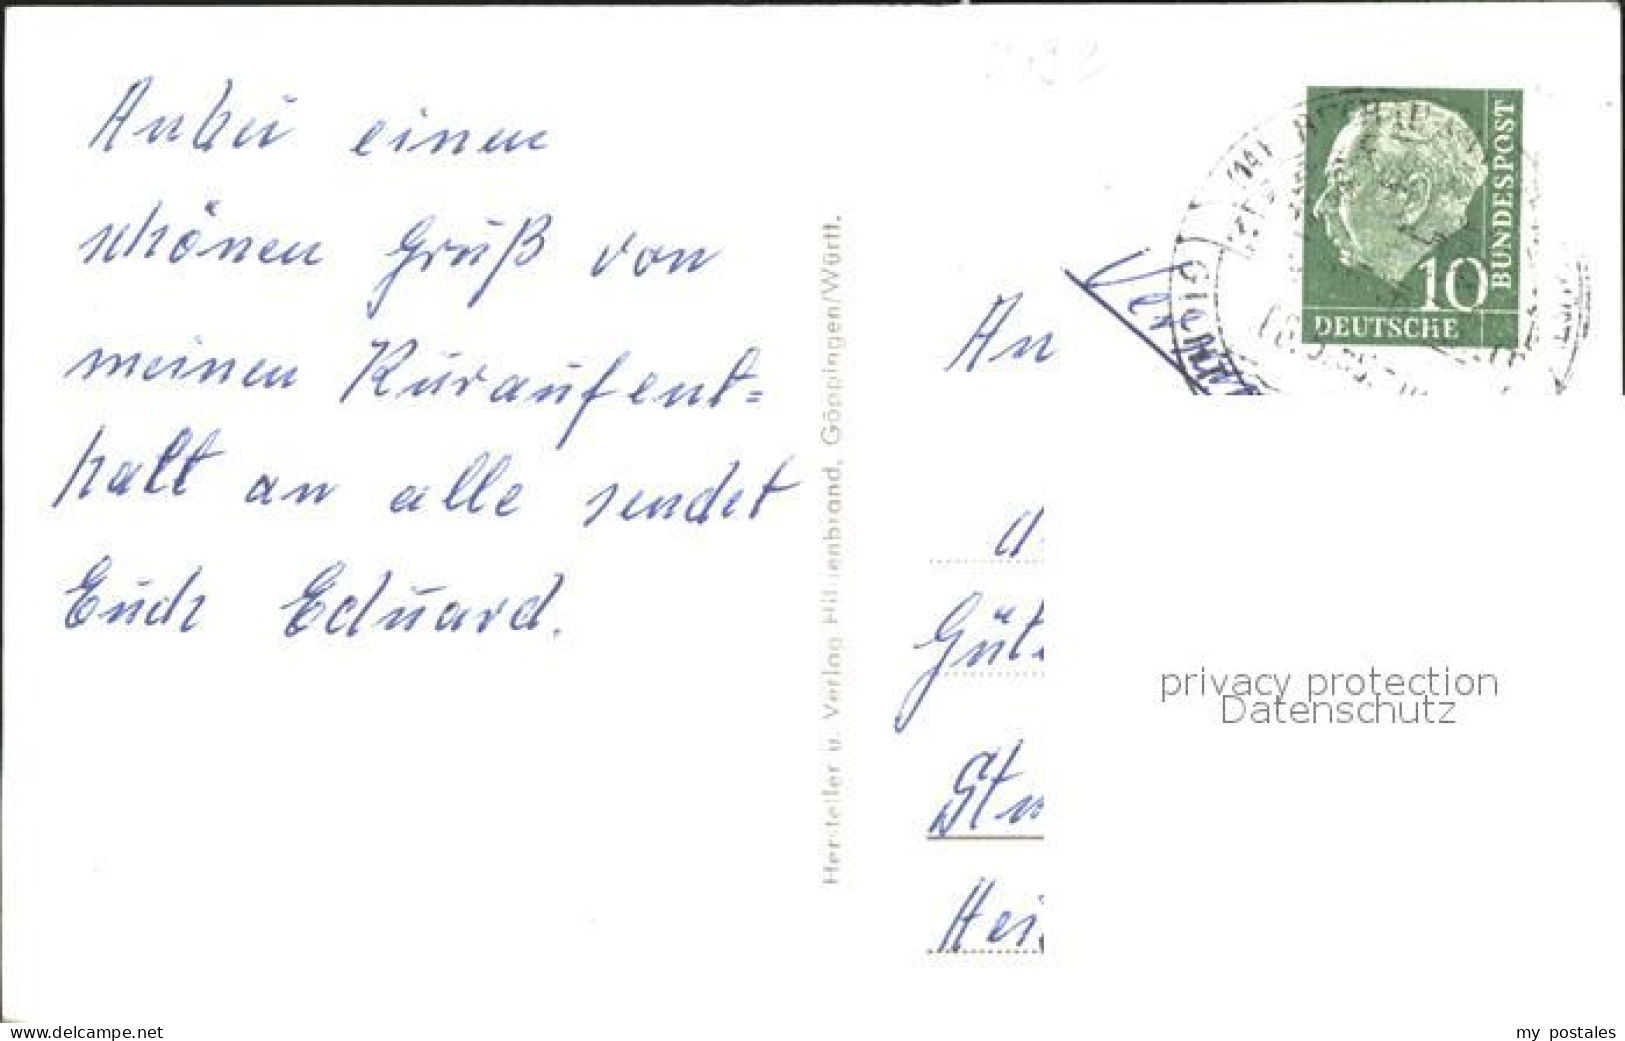 Anbei einen
schönen Gruß von
meinen Kuraufent=
halt an alle sendet
Euch Eduard.
Hersteller u. Verlag Hillenbrand, Göppingen/Württ.
BUNDESPOST
10
DEUTSCHE
An
Güt
Stu
Hei
privacy protection
Datenschutz
www.delcampe.net
my postales